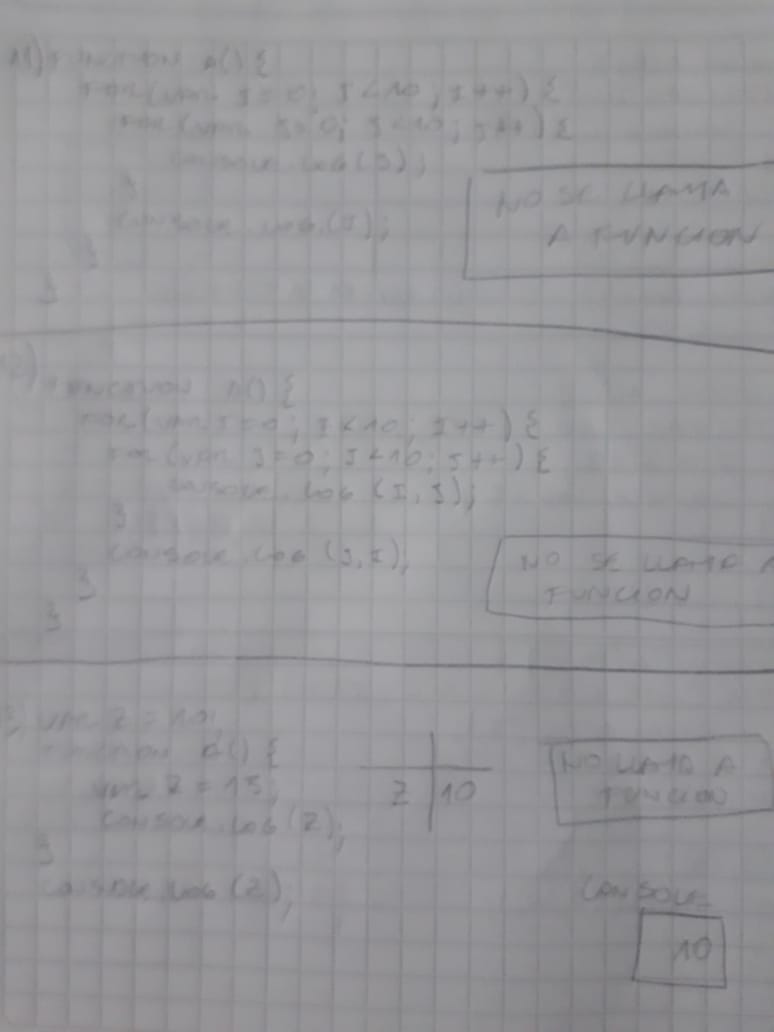 FUNCTION A() {
FOR (VAR I = 0; I < 10; I++) {
FOR (VAR J = 0; J < 10; J++) {
CONSOLE.LOG(J);
}
CONSOLE.LOG(I);
}
}
NO SE LLAMA
A FUNCION
FUNCTION A() {
FOR (VAR I = 0; I < 10; I++) {
FOR (VAR J = 0; J < 10; J++) {
CONSOLE.LOG (I, J);
}
CONSOLE.LOG (J, I);
}
}
NO SE LLAMA A
FUNCION
VAR Z = 10;
FUNCTION A() {
VAR Z = 15;
CONSOLE.LOG(Z);
}
CONSOLE.LOG(Z);
Z 10
NO LLAMA A
FUNCION
CONSOLE
10